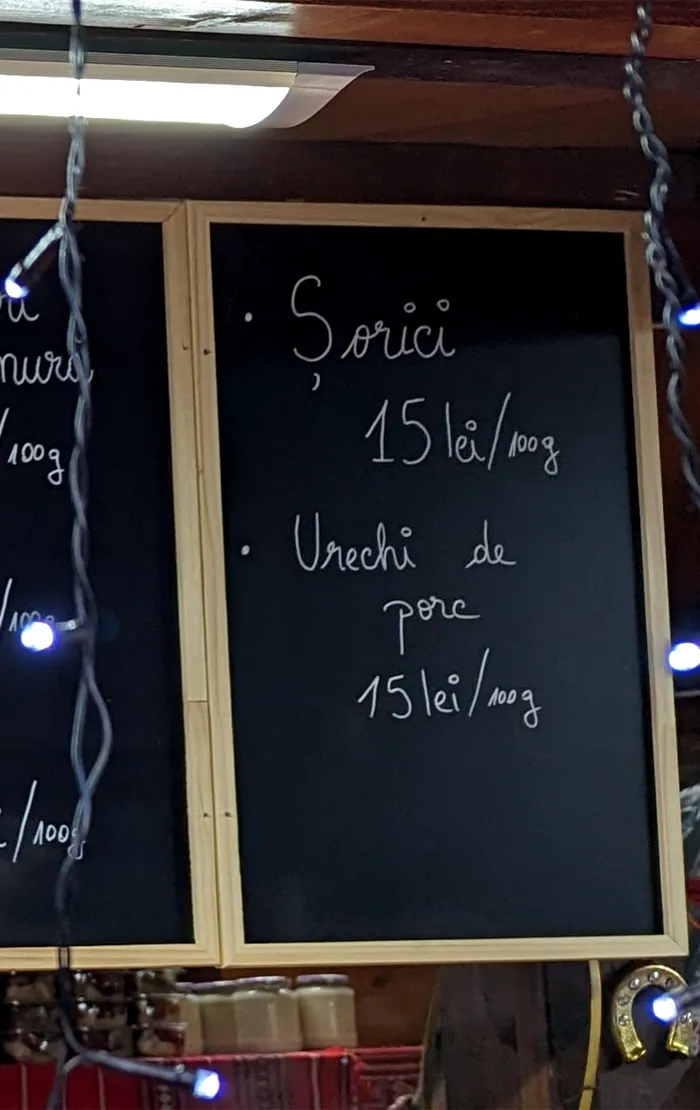 /100g
/100g
/100g
• Șorici
15 lei/100g
• Urechi de
porc
15 lei/100g